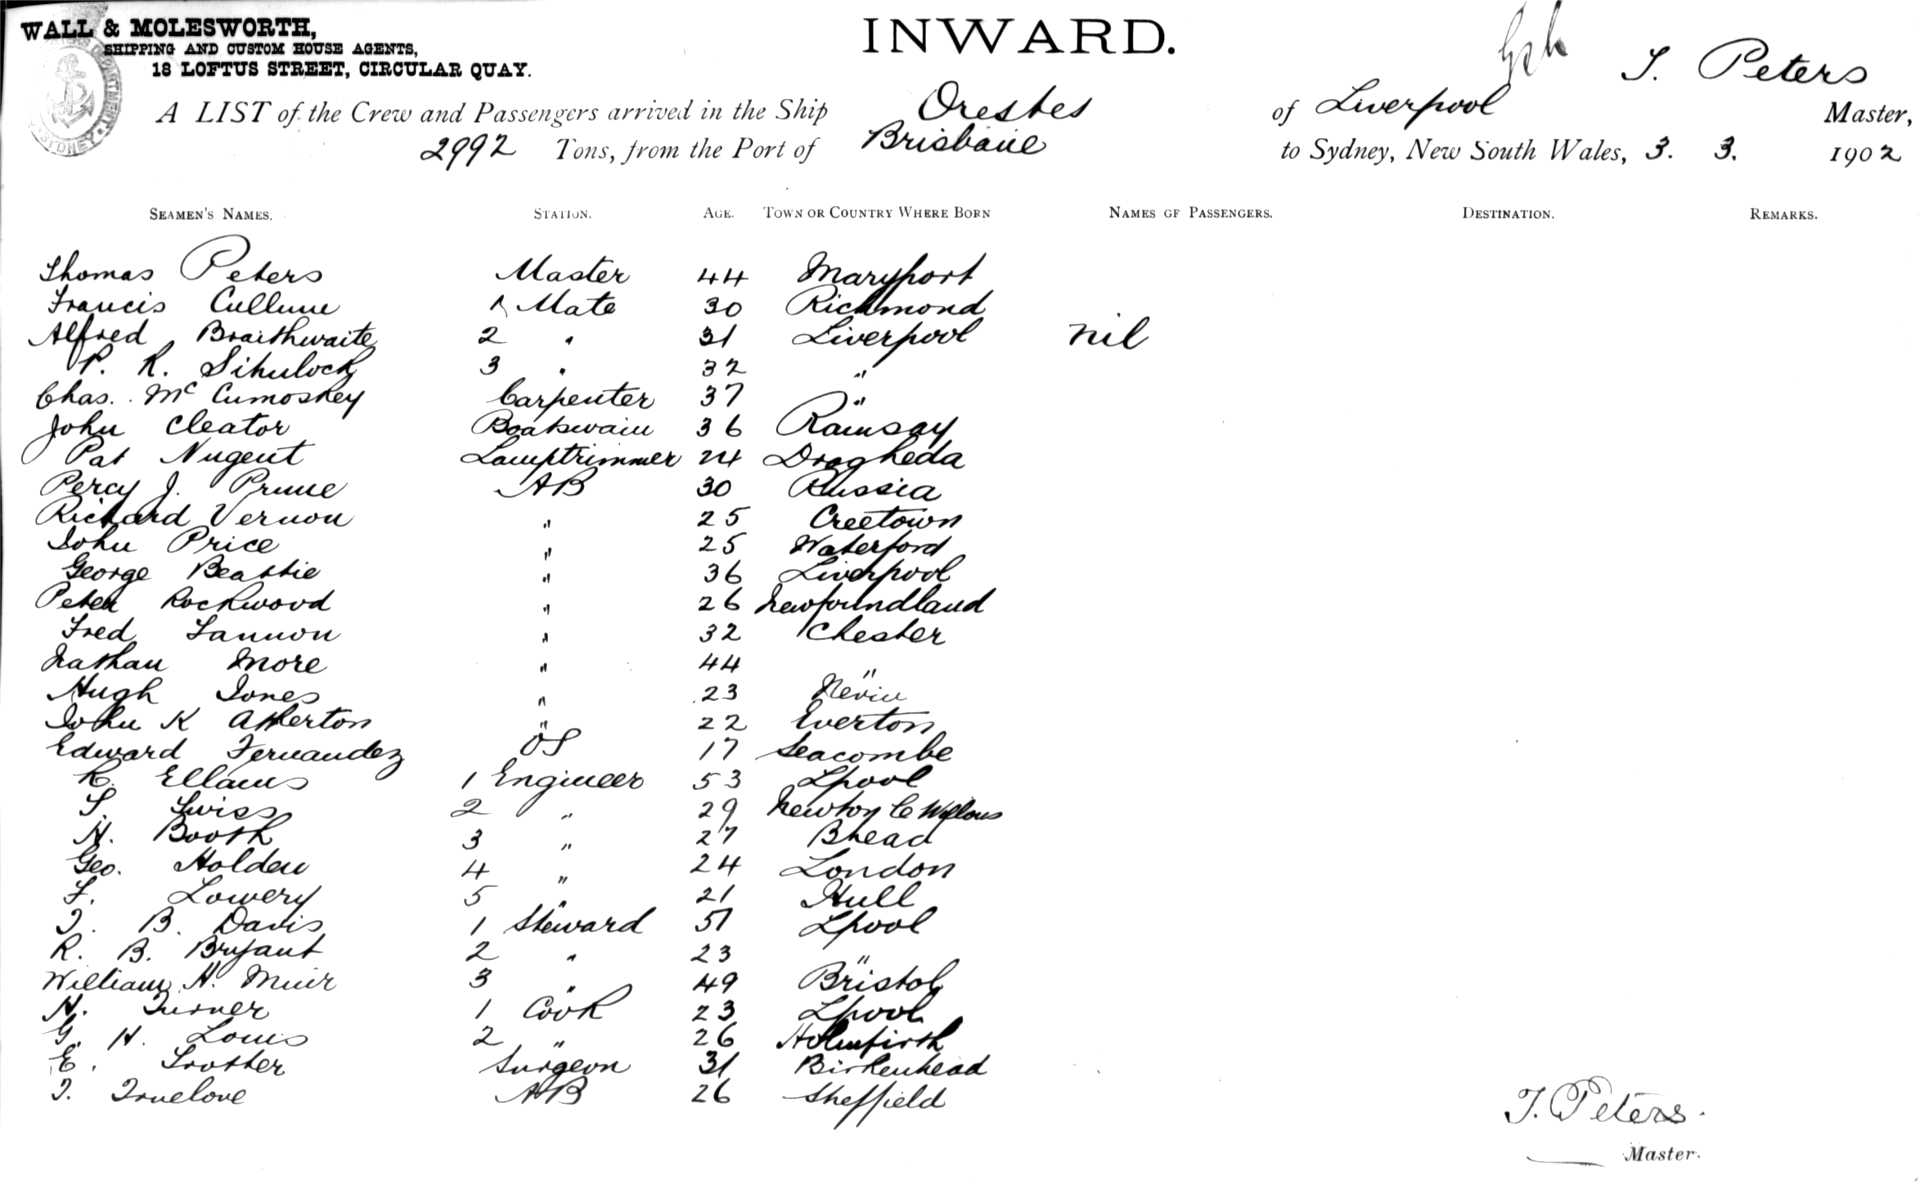 WALL & MOLESWORTH,
SHIPPING AND CUSTOM HOUSE AGENTS,
18 LOFTUS STREET, CIRCULAR QUAY.
INWARD.
T. Peters
A LIST of the Crew and Passengers arrived in the Ship Orestes of Liverpool Master,
2992 Tons, from the Port of Brisbane to Sydney, New South Wales, 3. 3. 1902
SEAMEN'S NAMES. STATION. AGE. TOWN OR COUNTRY WHERE BORN NAMES OF PASSENGERS. DESTINATION. REMARKS.
Thomas Peters Master 44 Maryport
Francis Cullum 1 Mate 30 Richmond
Alfred Braithwaite 2 " 31 Liverpool nil
P. R. 3 " 32 "
Chas. Mc Cumoskey Carpenter 37 "
John Cleator Boatswain 36 Ramsay
Pat Nugent Lamptrimmer 24 Drogheda
Percy J. Prume AB 30 Russia
Richard Vernon " 25 Creetown
John Price " 25 Waterford
George Beattie " 36 Liverpool
Peter Rockwood " 26 Newfoundland
Fred Lannon " 32 Chester
Nathan More " 44 "
Hugh Jones " 23 Nevin
John K Atherton " 22 Everton
Edward Fernandez OS 17 Seacombe
R. Ellams 1 Engineer 53 Lpool
S. Swiss 2 " 29 Newton le Willows
H. Booth 3 " 27 Bhead
Geo. Holden 4 " 24 London
F. Lowery 5 " 21 Hull
J. B. Davis 1 Steward 51 Lpool
R. B. Bryant 2 " 23 "
William H. Muir 3 " 49 Bristol
H. Turner 1 Cook 23 Lpool
G. H. Louis 2 " 26 Holmfirth
E. Trotter Surgeon 31 Birkenhead
J. Truelove AB 26 Sheffield
T. Peters.
Master.